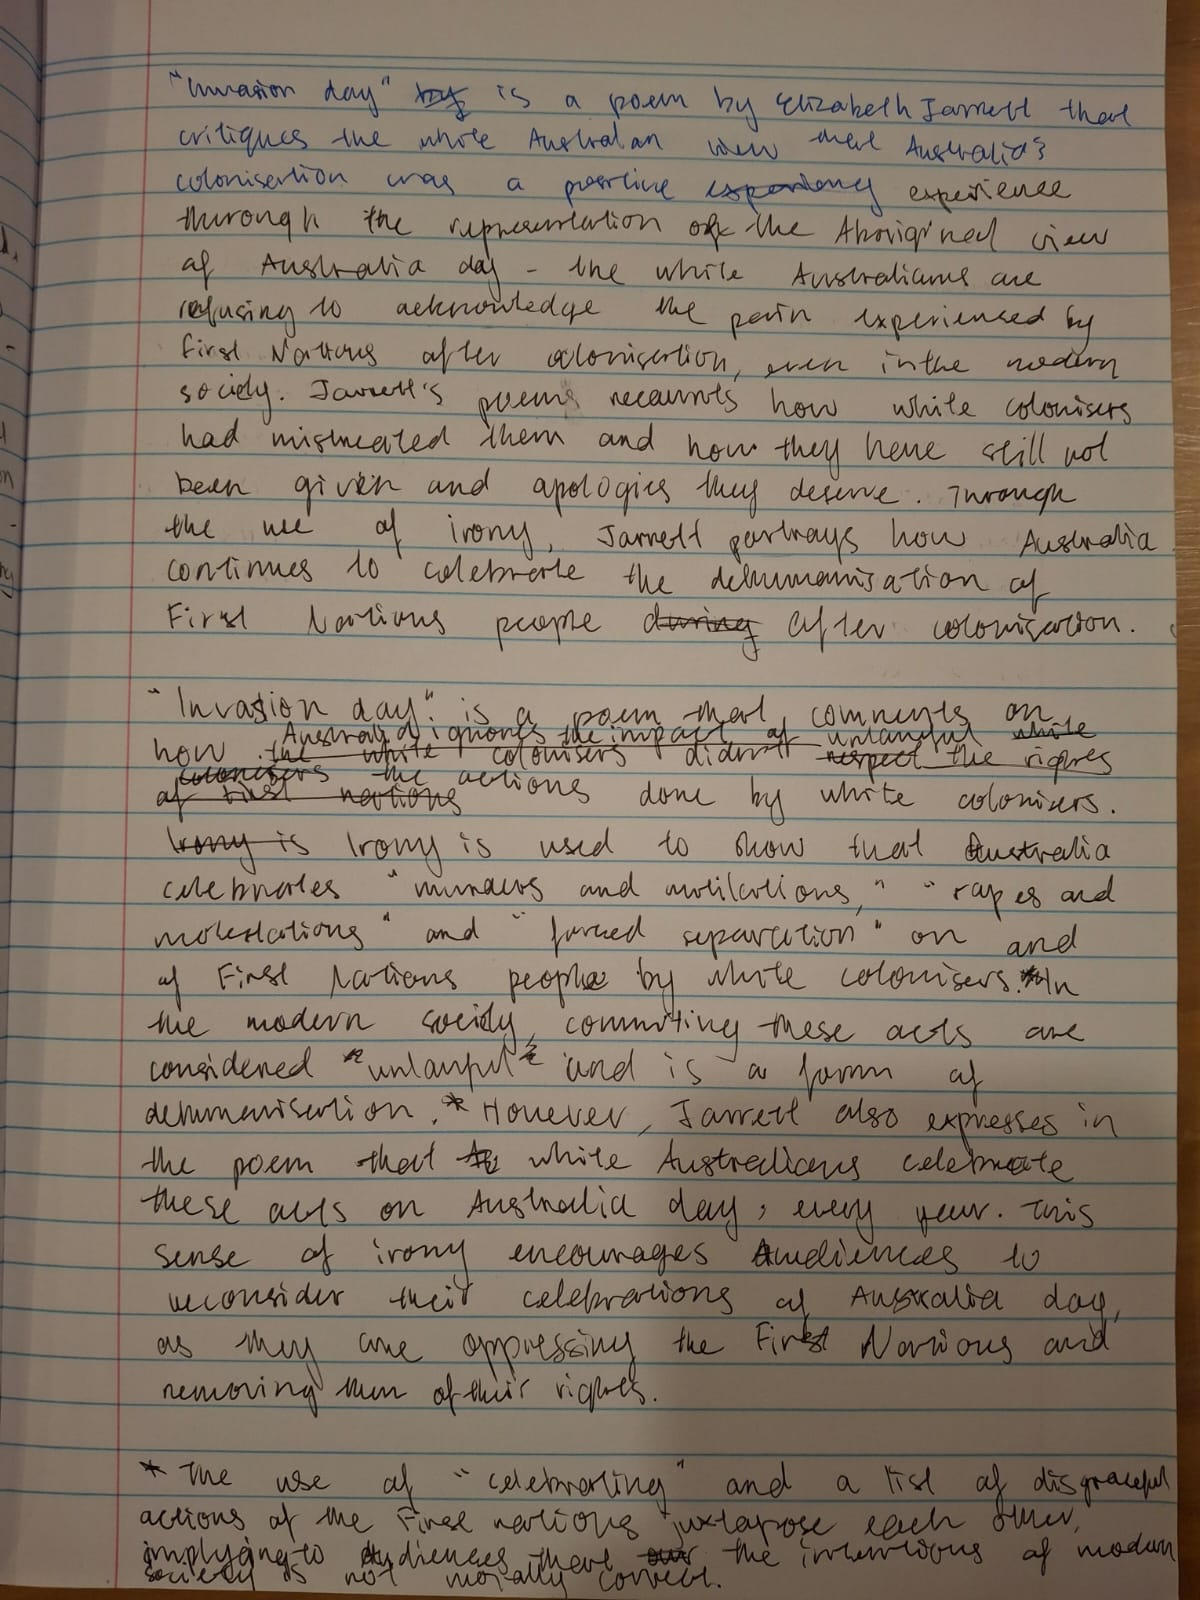 "Invasion day" by is a poem by Elizabeth Jarrett that
critiques the white Australian view that Australia's
colonisation was a positive experience
through the representation of the Aboriginal view
of Australia day - the white Australians are
refusing to acknowledge the pain experienced by
First Nations after colonisation, even in the modern
society. Jarrett's poems recounts how white colonisers
had mistreated them and how they have still not
been given and apologies they deserve. Through
the use of irony, Jarrett portrays how Australia
continues to celebrate the dehumanisation of
First Nations people during after colonisation.
"Invasion day" is a poem that comments on
Australia ignores the impact of unlawful white
how the white colonisers didn't respect the rights
colonisers the actions done by white colonisers.
of First nations
Irony is Irony is used to show that Australia
celebrates "murders and mutilations," "rapes and
molestations" and "forced separation" on and
of First Nations people by white colonisers.* In
the modern society, commiting these acts are
considered "unlawful" and is a form of
dehumanisation.* However, Jarrett also expresses in
the poem that white Australians celebrate
these acts on Australia day, every year. This
sense of irony encourages Audiences to
reconsider their celebrations of Australia day,
as they are oppressing the First Nations and
removing them of their rights.
* The use of "celebrating" and a list of disgraceful
actions of the First nations juxtapose each other,
implying to Audiences that our the intentions of modern
society is not morally correct.